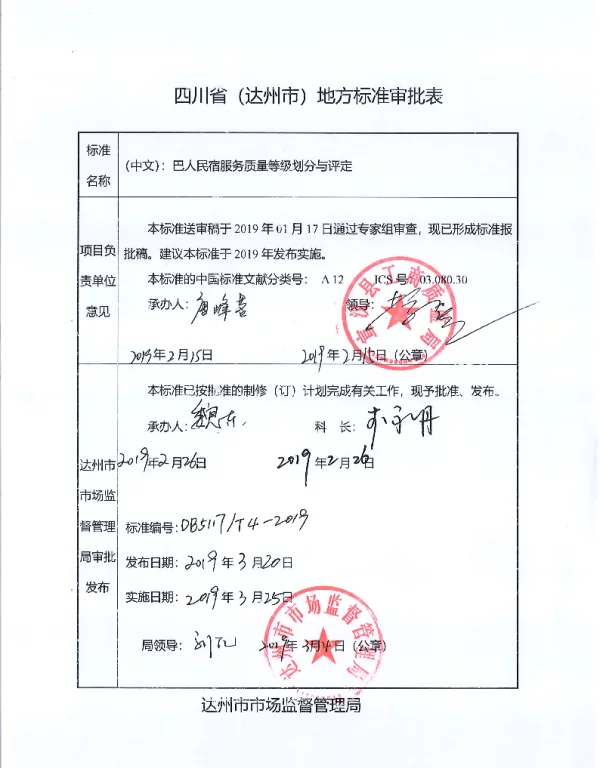 四川省（达州市）地方标准审批表
标准
名称
（中文）：巴人民宿服务质量等级划分与评定
项目负
责单位
意见
本标准送审稿于 2019 年 01 月 17 日通过专家组审查，现已形成标准报
批稿。建议本标准于 2019 年发布实施。
本标准的中国标准文献分类号： A 12 ICS 号：03.080.30
承办人： 领导：
宣汉县工商质监局
2019年2月15日 2019年2月15日（公章）
达州市
市场监
督管理
局审批
发布
本标准已按批准的制修（订）计划完成有关工作，现予批准、发布。
承办人：魏东 科 长：
2019年2月26日 2019年2月26日
标准编号：DB5117/T4-2019
发布日期：2019年3月20日
实施日期：2019年3月25日
达州市市场监督管理局
局领导： 2019年3月4日（公章）
达州市市场监督管理局